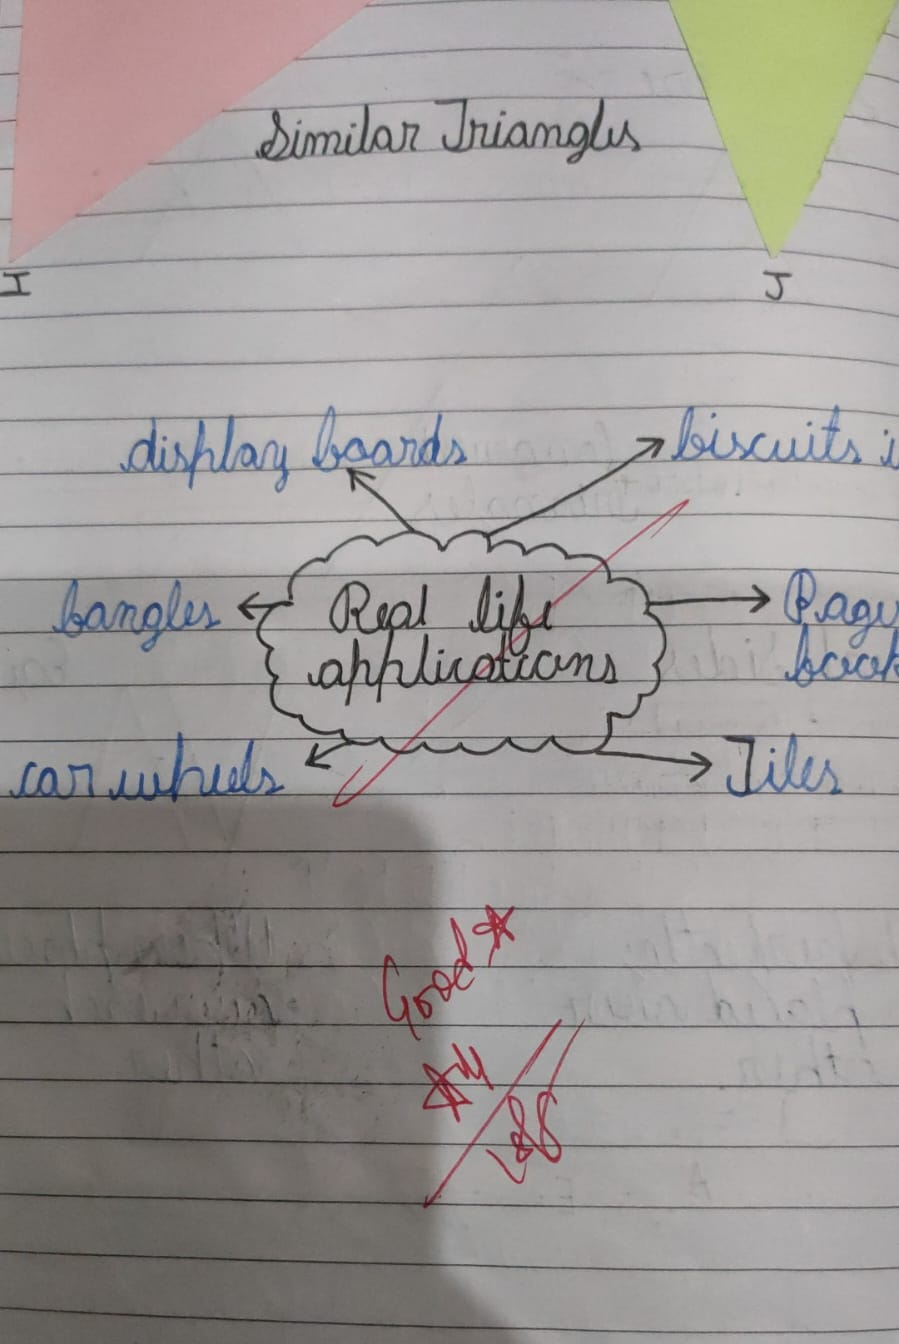 Similar Triangles
I
J
display boards
biscuits i
bangles
Real life
applications
Page
book
car wheels
Tiles
Good